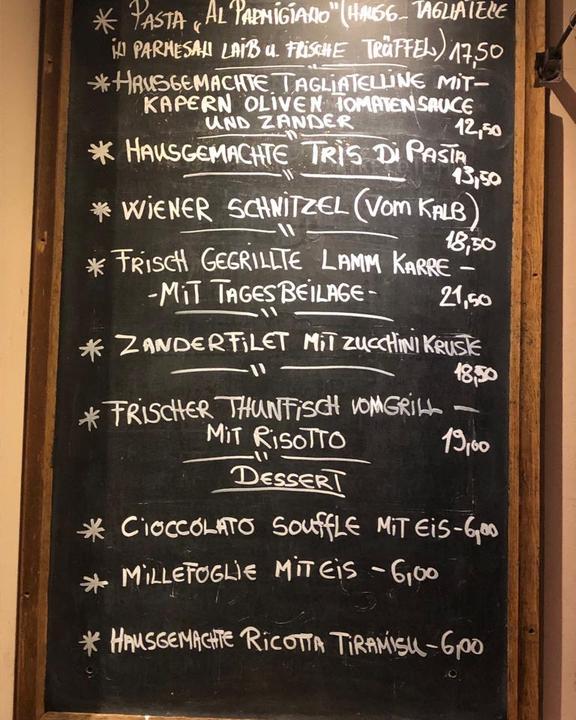 * PASTA „AL PARMIGIANO" (HAUSG. TAGLIATELE
IN PARMESAN LAIB U. FRISCHE TRÜFFEL) 17,50
* HAUSGEMACHTE TAGLIATELLINE MIT-
KAPERN OLIVEN TOMATENSAUCE
UND ZANDER 12,50
* HAUSGEMACHTE TRIS DI PASTA
13,50
* WIENER SCHNITZEL (VOM KALB)
18,50
* FRISCH GEGRILLTE LAMM KARRE -
- MIT TAGESBEILAGE - 21,50
* ZANDERFILET MIT ZUCCHINI KRUSTE
18,50
* FRISCHER THUNFISCH VOM GRILL -
MIT RISOTTO 19,00
DESSERT
* CIOCCOLATO SOUFFLE MIT EIS - 6,00
* MILLEFOGLIE MIT EIS - 6,00
* HAUSGEMACHTE RICOTTA TIRAMISU - 6,00